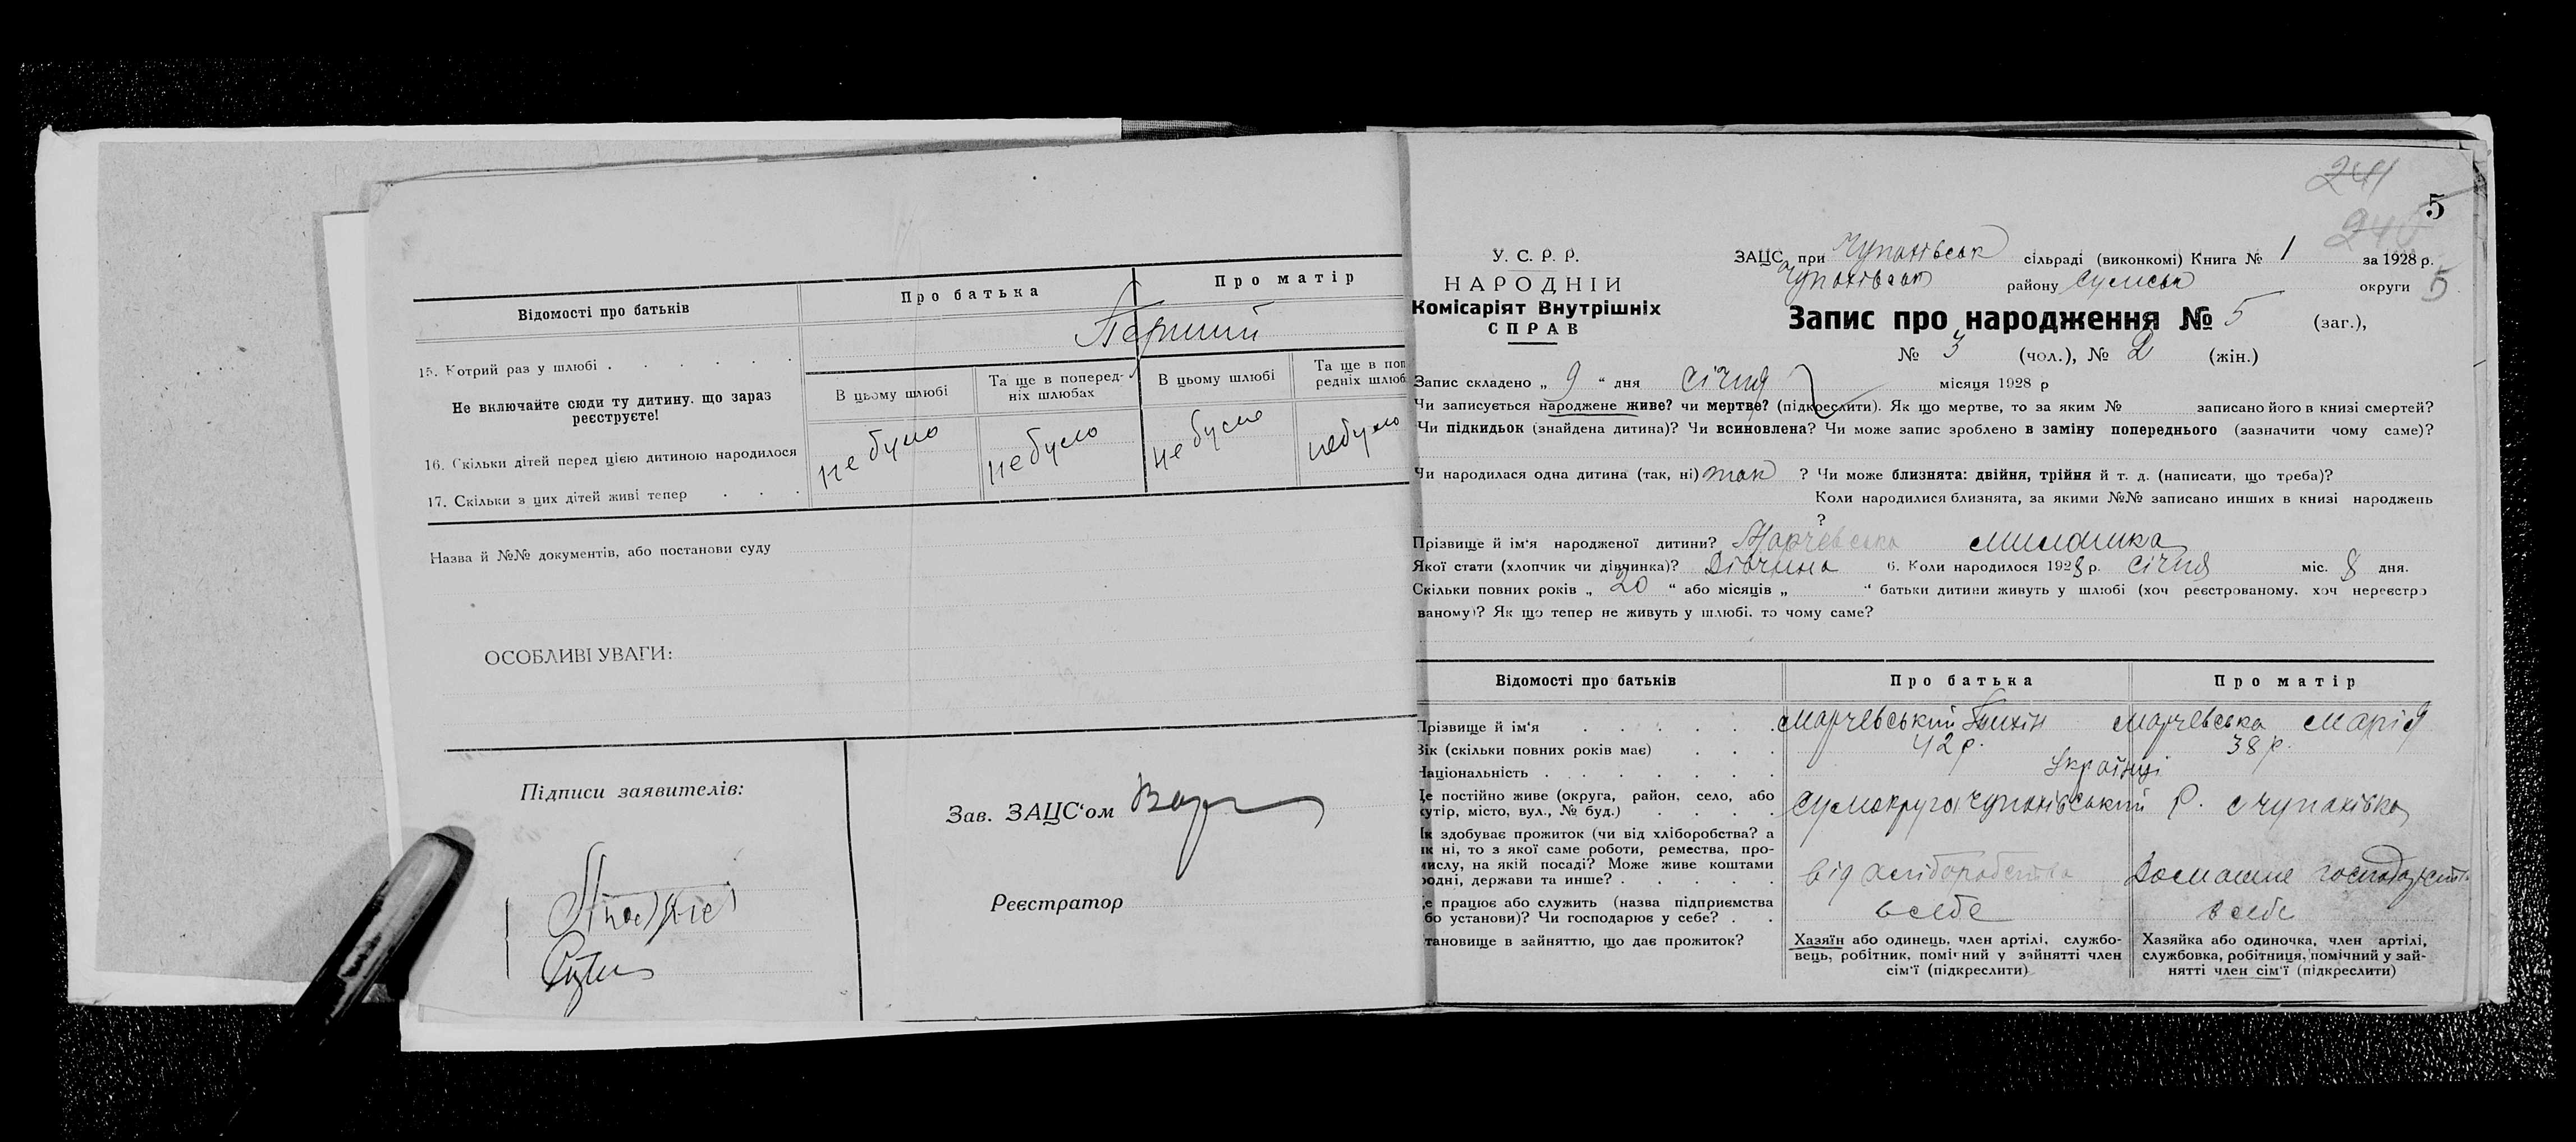 Відомості про батьків
Про батька
Про матір
15. Котрий раз у шлюбі
Перший
Не включайте сюди ту дитину, що зараз
реєструєте!
В цьому шлюбі
Та ще в поперед-
ніх шлюбах
В цьому шлюбі
Та ще в поп
редніх шлюб
16. Скільки дітей перед цією дитиною народилося
не було
не було
не було
не було
17. Скільки з цих дітей живі тепер
Назва й №№ документів, або постанови суду
ОСОБЛИВІ УВАГИ:
Підписи заявителів:
Зав. ЗАЦС'ом
Реєстратор
241
5
240
У. С. Р. Р.
НАРОДНІЙ
Комісаріят Внутрішніх
СПРАВ
ЗАЦС при Чупахівськ сільраді (виконкомі) Книга № 1 за 1928 р.
Чупахівськ району Сумськ округи 5
Запис про народження № 5 (заг.),
№ 3 (чол.), № 2 (жін.)
Запис складено „ 9 “ дня січня місяця 1928 р
Чи записується народжене живе? чи мертве? (підкреслити). Як що мертве, то за яким № записано його в книзі смертей?
Чи підкидьок (знайдена дитина)? Чи всиновлена? Чи може запис зроблено в заміну попереднього (зазначити чому саме)?
Чи народилася одна дитина (так, ні) так ? Чи може близнята: двійня, трійня й т. д. (написати, що треба)?
Коли народилися близнята, за якими №№ записано инших в книзі народжень
?
Прізвище й ім'я народженої дитини? Марчевська
Якої стати (хлопчик чи дівчинка)? Дівчина 6. Коли народилося 1928 р. січня міс. 8 дня.
Скільки повних років „ 20 “ або місяців „ “ батьки дитини живуть у шлюбі (хоч реєстрованому, хоч нереєстро
ваному)? Як що тепер не живуть у шлюбі, то чому саме?
Відомості про батьків
Про батька
Про матір
Прізвище й ім'я
Марчевський
Марчевська Марія
Вік (скільки повних років має)
42 р.
38 р.
Національність
Українці
Де постійно живе (округа, район, село, або
хутір, місто, вул., № буд.)
Сумокруга Чупахівський Р. с Чупахівка
Як здобуває прожиток (чи від хліборобства? а
як ні, то з якої саме роботи, ремества, про-
мислу, на якій посаді? Може живе коштами
родні, держави та инше?
від хліборобства
Домашнє господарство
Де працює або служить (назва підприємства
або установи)? Чи господарює у себе?
в себе
в себе
Становище в зайняттю, що дає прожиток?
Хазяїн або одинець, член артілі, службо-
вець, робітник, помічний у зайнятті член
сім'ї (підкреслити)
Хазяйка або одиночка, член артілі,
службовка, робітниця, помічний у зай-
нятті член сім'ї (підкреслити)